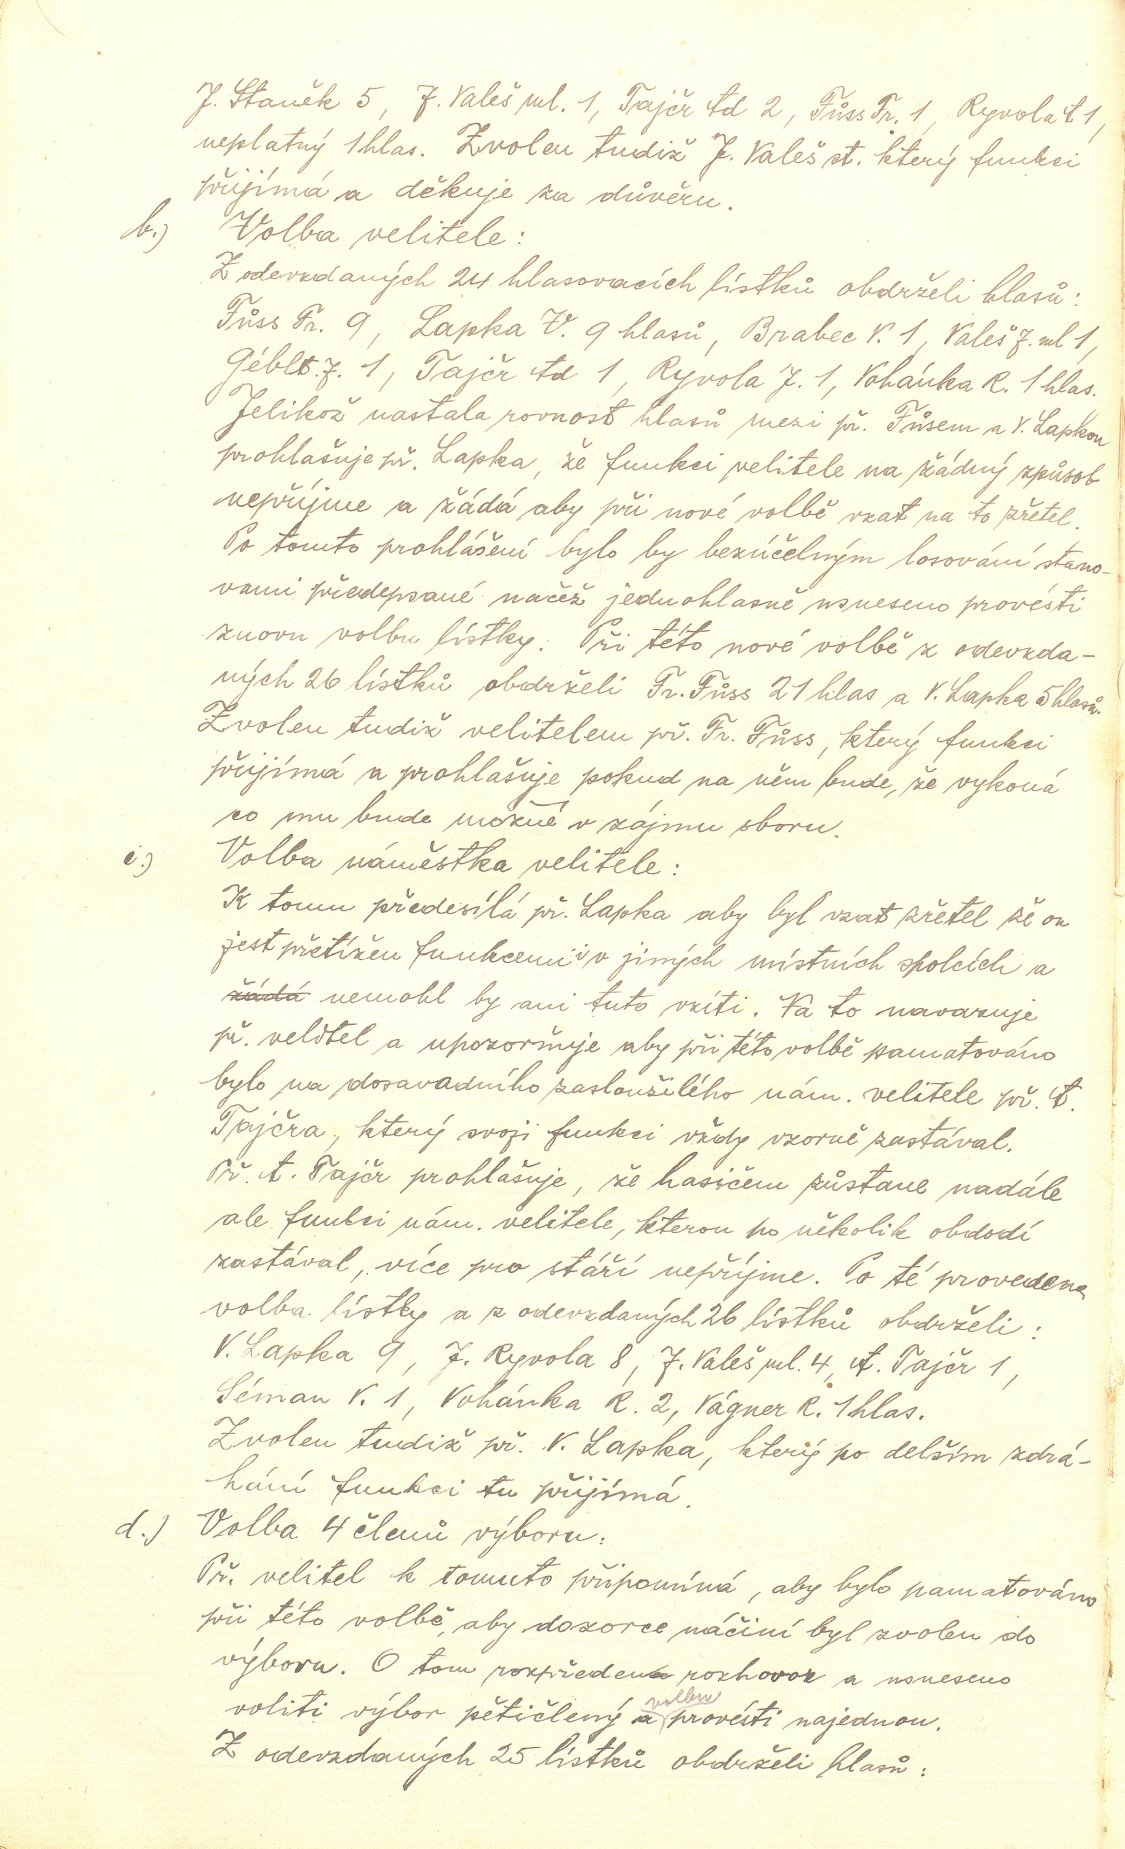 J. Staněk 5, J. Valeš ml. 1, Tajčr Ad 2, Fůss Fr. 1, Ryvola A 1,
neplatný 1 hlas. Zvolen tudiž J. Valeš st. který funkci
přijímá a děkuje za důvěru.
b.) Volba velitele:
Z odevzdaných 24 hlasovacích lístků obdrželi hlasů:
Fůss Fr. 9, Lapka V. 9 hlasů, Brabec V. 1, Valeš J. ml 1,
Géblt. J. 1, Tajčr Ad 1, Ryvola J. 1, Vohánka R. 1 hlas.
Jelikož nastala rovnost hlasů mezi př. Fůsem a V. Lapkou
prohlašuje př. Lapka, že funkci velitele na žádný způsob
nepříjme a žádá aby při nové volbě vzat na to zřetel.
Po tomto prohlášení bylo by bezúčelným losování stano-
vami předepsané načež jednohlasně usneseno provésti
znovu volbu lístky. Při této nové volbě z odevzda-
ných 26 lístků obdrželi Fr. Fůss 21 hlas a V. Lapka 5 hlasů.
Zvolen tudiž velitelem př. Fr. Fůss, který funkci
přijímá a prohlašuje pokud na něm bude, že vykoná
co mu bude možné v zájmu sboru.
c.) Volba náměstka velitele:
K tomu předesílá př. Lapka aby byl vzat zřetel že on
jest přetížen funkcemi i v jiných místních spolcích a
žádá nemohl by ani tuto vzíti. Na to navazuje
př. velitel a upozorňuje aby při této volbě pamatováno
bylo na dosavadního zasloužilého nám. velitele př. A.
Tajčra, který svoji funkci vždy vzorně zastával.
Př. A. Tajčr prohlašuje, že hasičem zůstane nadále
ale funkci nám. velitele, kterou po několik obdodí
zastával, více pro stáří nepříjme. Po té provedena
volba lístky a z odevzdaných 26 lístků obdrželi:
V. Lapka 9, J. Ryvola 8, J. Valeš ml. 4, A. Tajčr 1,
Séman V. 1, Vohánka R. 2, Vágner R. 1 hlas.
Zvolen tudiž př. V. Lapka, který po delším zdrá-
hání funkci tu přijímá.
d.) Volba 4 členů výboru:
Př. velitel k tomuto připomíná, aby bylo pamatováno
při této volbě, aby dozorce náčiní byl zvolen do
výboru. O tom rozpředen rozhovor a usneseno
voliti výbor pětičlený a volbu provésti najednou.
Z odevzdaných 25 lístků obdrželi hlasů: